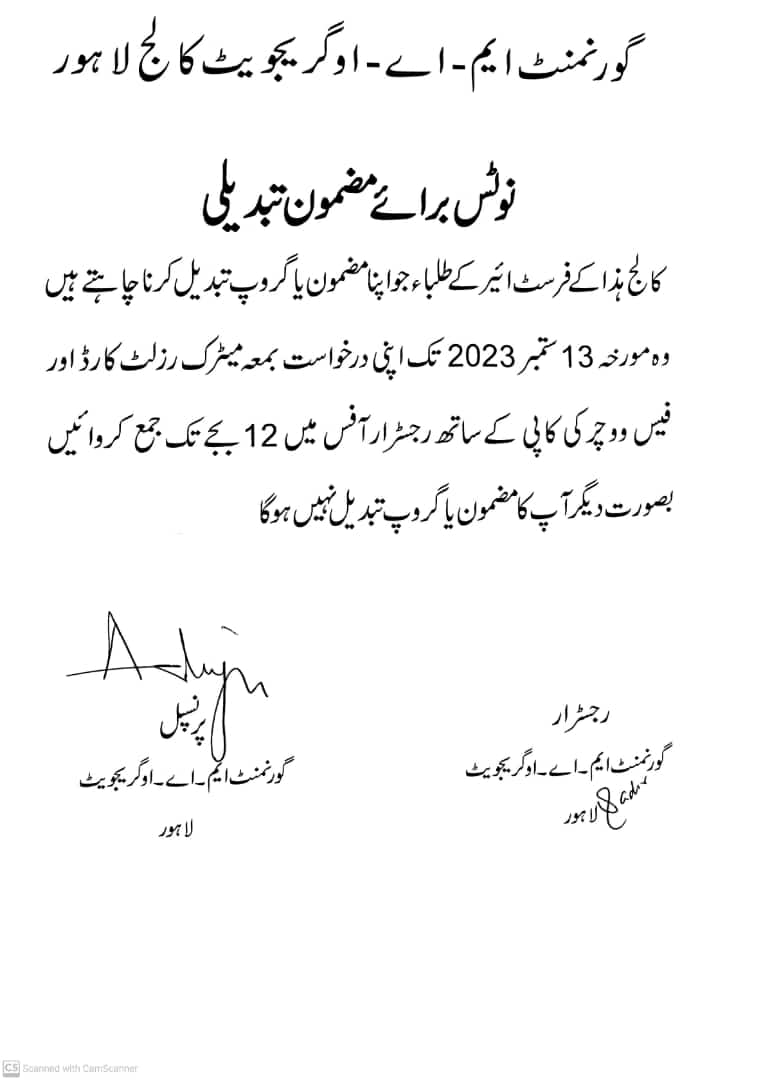 گورنمنٹ ایم-اے-او گریجویٹ کالج لاہور
نوٹس برائے مضمون تبدیلی
کالج ہذا کے فرسٹ ائیر کے طلباء جو اپنا مضمون یا گروپ تبدیل کرنا چاہتے ہیں
وہ مورخہ 13 ستمبر 2023 تک اپنی درخواست بمعہ میٹرک رزلٹ کارڈ اور
فیس ووچر کی کاپی کے ساتھ رجسٹرار آفس میں 12 بجے تک جمع کروائیں
بصورت دیگر آپ کا مضمون یا گروپ تبدیل نہیں ہوگا
رجسٹرار
گورنمنٹ ایم-اے-او گریجویٹ
لاہور
پرنسپل
گورنمنٹ ایم-اے-او گریجویٹ
لاہور
CS Scanned with CamScanner